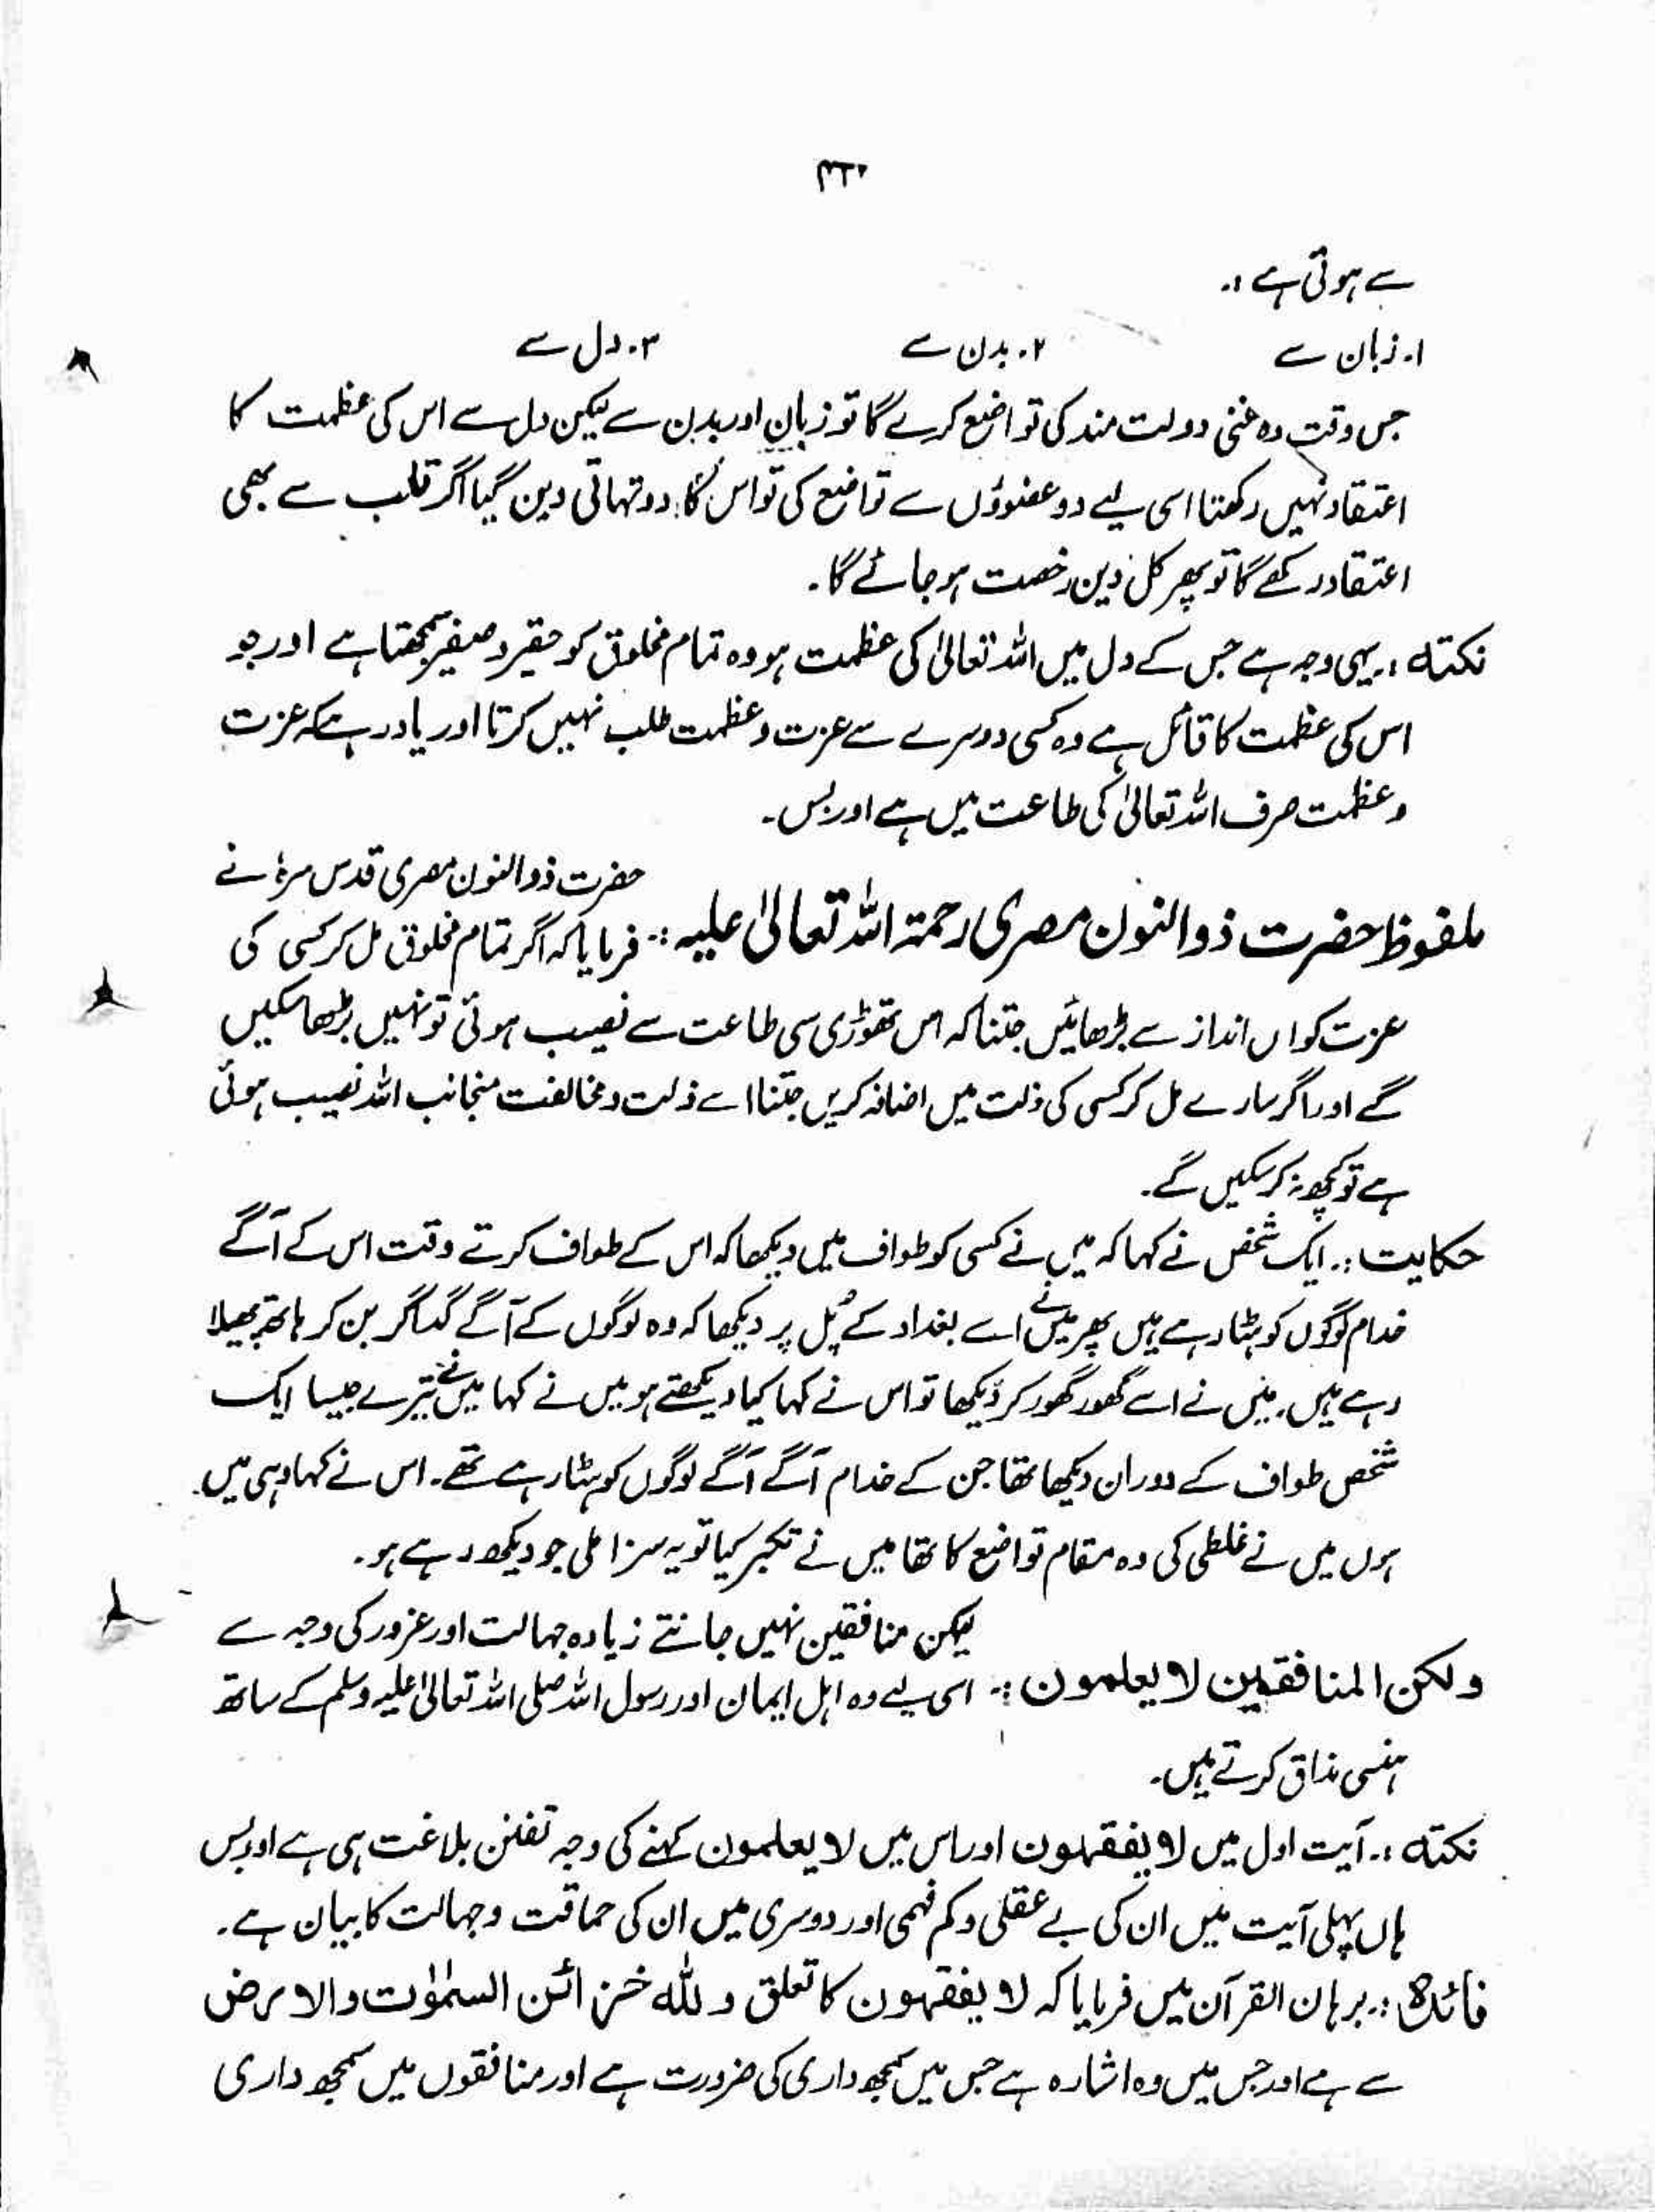 ۴۲۰
سے ہوتی ہے :۔
۱۔ زبان سے ۲۔ بدن سے ۳۔ دل سے
جس وقت وہ غنی دولت مند کی تواضع کرے گا تو زبان اور بدن سے لیکن دل سے اس کی عظمت کا
اعتقاد نہیں رکھتا اسی لیے دو عضوؤں سے تواضع کی تو اس کا دو تہائی دین گیا اگر قلب سے بھی
اعتقاد رکھے گا تو پھر کل دین رخصت ہو جائے گا۔
نکتہ :۔ یہی وجہ ہے جس کے دل میں اللہ تعالیٰ کی عظمت ہو وہ تمام مخلوق کو حقیر و صغیر سمجھتا ہے اور جو
اس کی عظمت کا قائل ہے وہ کسی دوسرے سے عزت و عظمت طلب نہیں کرتا اور یاد رہے کہ عزت
و عظمت صرف اللہ تعالیٰ کی طاعت میں ہے اور بس۔
حضرت ذوالنون مصری قدس سرہٗ نے
ملفوظ حضرت ذوالنون مصری رحمۃ اللہ تعالیٰ علیہ :۔ فرمایا کہ اگر تمام مخلوق مل کر کسی کی
عزت کو اس انداز سے بڑھائیں جتنا کہ اس تھوڑی سی طاعت سے نصیب ہوئی تو نہیں بڑھا سکیں
گے اور اگر سارے مل کر کسی کی ذلت میں اضافہ کریں جتنا اسے ذلت و مخالفت منجانب اللہ نصیب ہوئی
ہے تو کچھ نہ کر سکیں گے۔
حکایت :۔ ایک شخص نے کہا کہ میں نے کسی کو طواف میں دیکھا کہ اس کے طواف کرتے وقت اس کے آگے
خدام لوگوں کو ہٹا رہے ہیں پھر میں نے اسے بغداد کے پُل پر دیکھا کہ وہ لوگوں کے آگے گداگر بن کر ہاتھ پھیلا
رہے ہیں۔ میں نے اسے گھور گھور کر دیکھا تو اس نے کہا کیا دیکھتے ہو میں نے کہا میں نے تیرے جیسا ایک
شخص طواف کے دوران دیکھا تھا جن کے خدام آگے آگے لوگوں کو ہٹا رہے تھے۔ اس نے کہا وہی میں
ہوں میں نے غلطی کی وہ مقام تواضع کا تھا میں نے تکبر کیا تو یہ سزا ملی جو دیکھ رہے ہو۔
لیکن منافقین نہیں جانتے زیادہ جہالت اور غرور کی وجہ سے
ولکن المنافقین لا یعلمون :۔ اسی لیے وہ اہل ایمان اور رسول اللہ صلی اللہ تعالیٰ علیہ وسلم کے ساتھ
ہنسی مذاق کرتے ہیں۔
نکتہ :۔ آیت اول میں لا یفقہون اور اس میں لا یعلمون کہنے کی وجہ تفنن بلاغت ہی ہے اور بس
ہاں پہلی آیت میں ان کی بے عقلی و کم فہمی اور دوسری میں ان کی حماقت و جہالت کا بیان ہے۔
فائدہ :۔ برہان القرآن میں فرمایا کہ لا یفقہون کا تعلق وللہ خزائن السمٰوٰت والارض
سے ہے اور جس میں وہ اشارہ ہے جس میں سمجھ داری کی ضرورت ہے اور منافقوں میں سمجھ داری